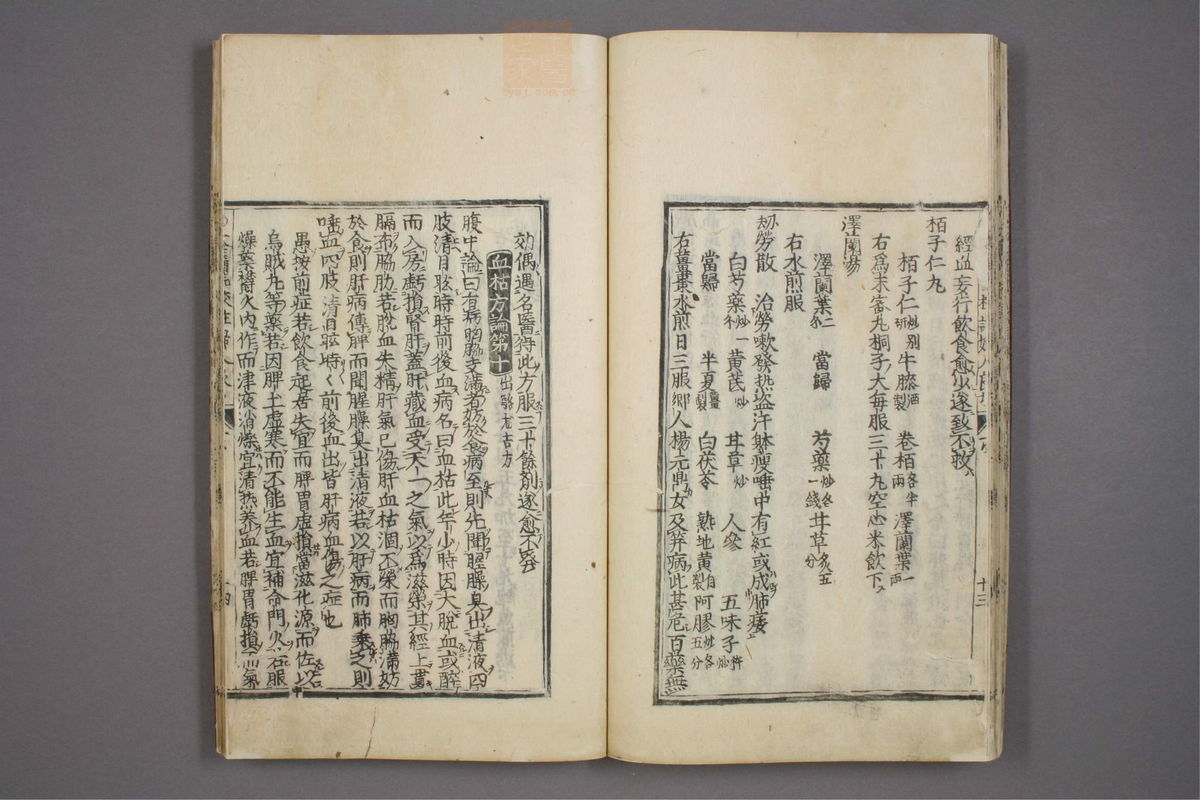 經血妄行飲食愈少遂致不救
栢子仁丸
栢子仁炒別研 牛膝酒製 卷栢各半兩 澤蘭葉二兩
右爲末蜜丸桐子大每服三十丸空心米飲下
澤蘭湯
澤蘭葉三兩 當歸 芍藥炒各一錢 甘草炙五分
右水煎服
刼勞散 治勞嗽發熱盜汗躰瘦唾中有紅或成肺痿
白芍藥炒 黃芪炒 甘草炒 人參 五味子杵炒
當歸 半夏薑製 白茯苓 熟地黃自製 阿膠炒各五分
右薑棗水煎日三服鄉人楊元鼎女及笄病此甚危百藥無
十三
效偶遇名醫得此方服三十餘劑遂愈不發
血枯方論第十 出駱尤吉方
腹中論曰有病胸脇支滿者妨於食病至則先聞腥臊臭出清液四
肢清目眩時時前後血病名曰血枯此年少時因大脫血或醉
而入房虧損腎肝蓋肝藏血受天一之氣以爲滋榮其經上貫
膈布脇肋若脫血失精肝氣已傷肝血枯涸不榮而胸脇滿妨
於食則肝病傳脾而聞腥臊臭出清液若以肝病而肺乘之則
唾血四肢清目眩時く前後血出皆肝病血傷之症也
愚按前症若飲食起居失宜而脾胃虛損當滋化源而佐以
烏賊丸等藥若因脾土虛寒而不能生血宜補命門火若服
燥藥鬱火內作而津液消爍宜清熱養血若脾胃虧損